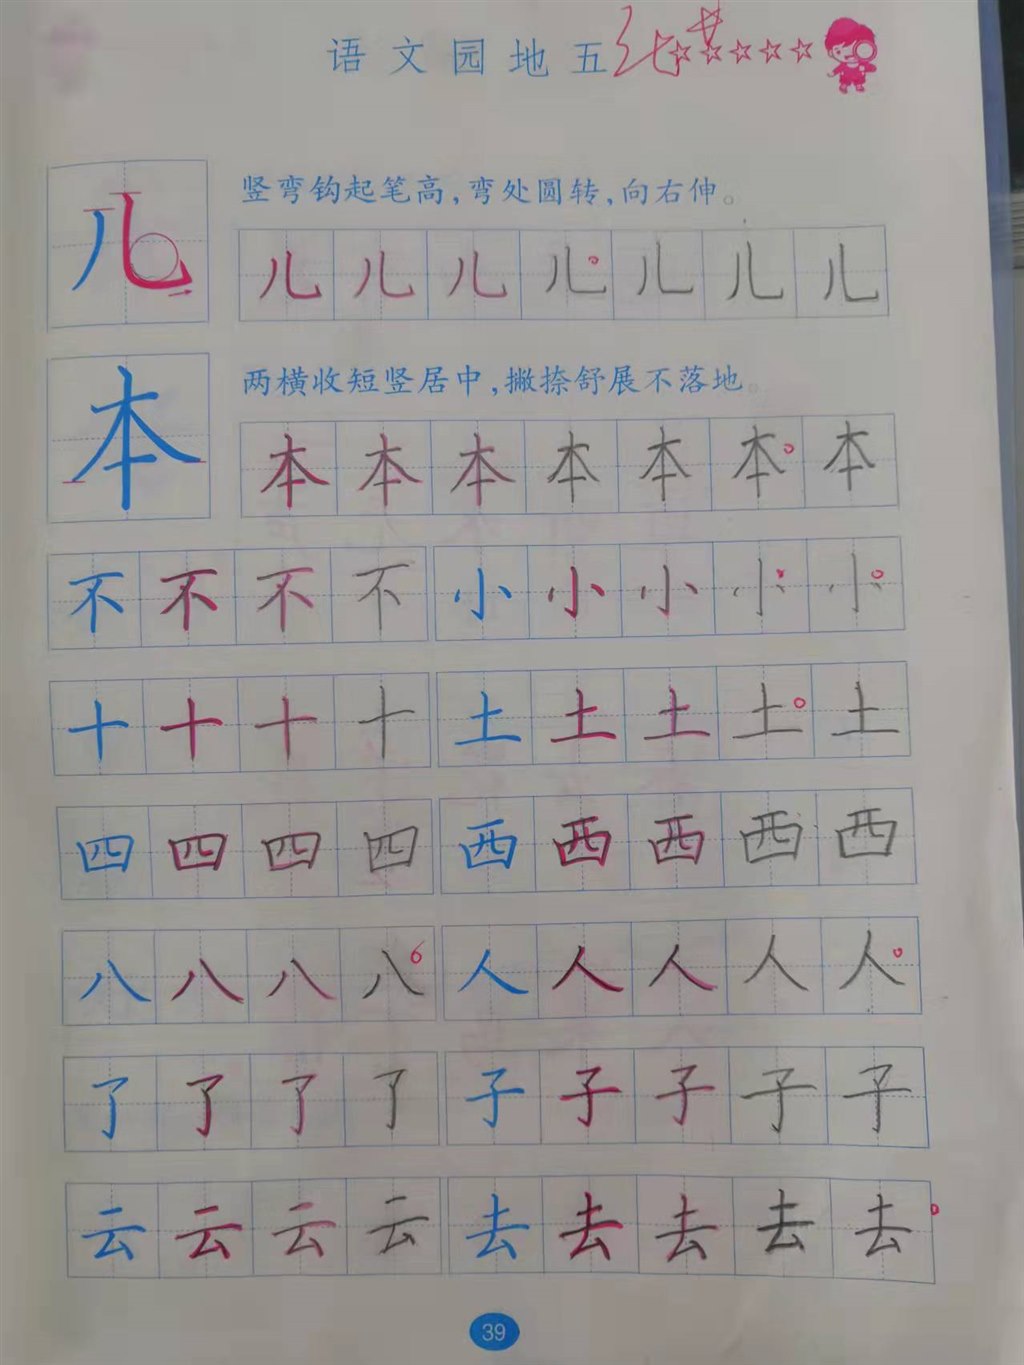 语文园地五
儿
竖弯钩起笔高,弯处圆转,向右伸。
儿 儿 儿 儿 儿 儿 儿
本
两横收短竖居中,撇捺舒展不落地。
本 本 本 本 本 本 本
不 不 不 不 小 小 小 小 小
十 十 十 十 土 土 土 土 土
四 四 四 四 西 西 西 西 西
八 八 八 八 人 人 人 人 人
了 了 了 了 子 子 子 子 子
云 云 云 云 去 去 去 去 去
39